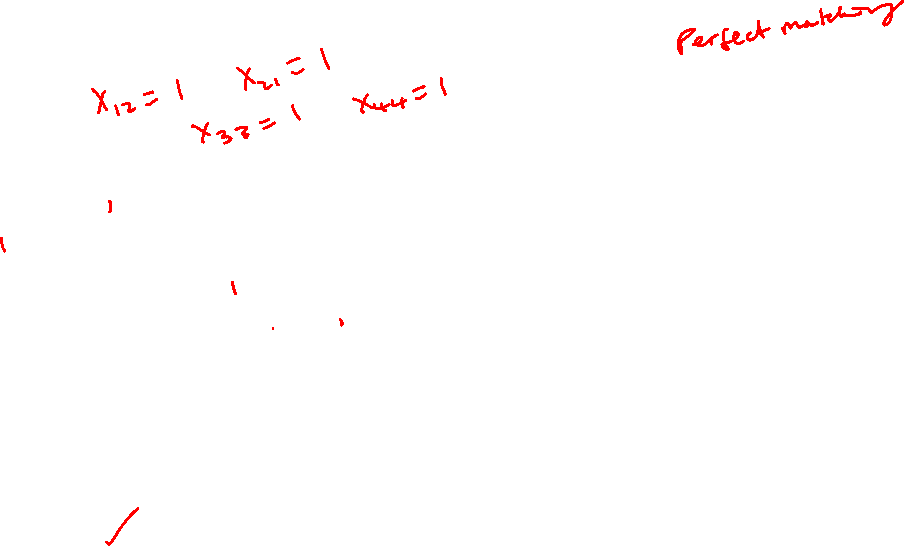 Perfect matching
x12 = 1 x21 = 1
x33 = 1 x44 = 1
1
1
1
1